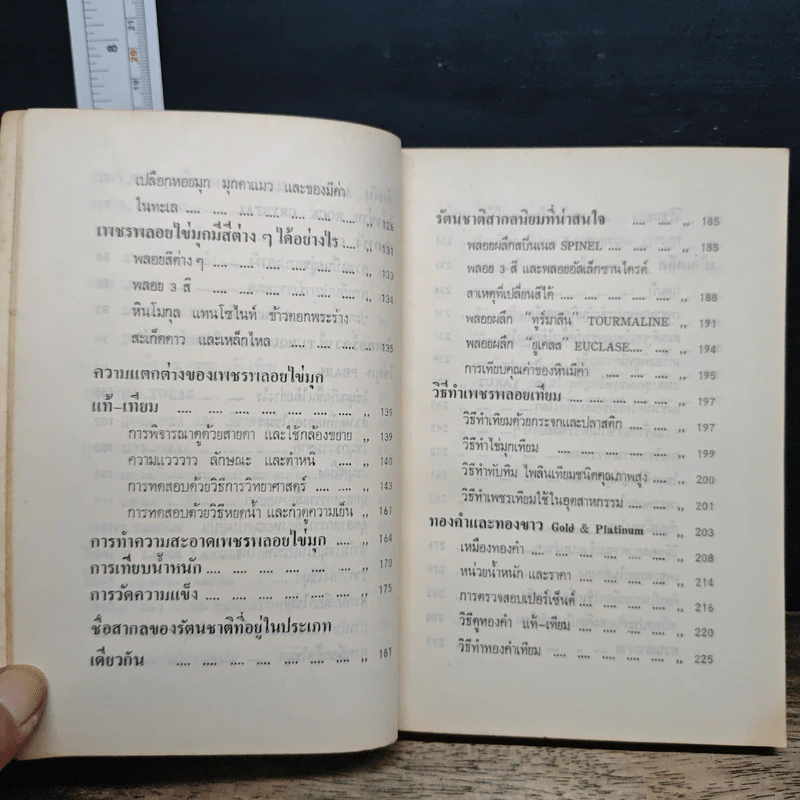 เปลือกหอยมุก มุกตาแมว และของมีค่า
ในทะเล .... .... .... .... .... .... .... ,, 126
เพชรพลอยไข่มุกมีสีต่าง ๆ ได้อย่างไร .... ,, 131
พลอยสีต่างๆ .... .... .... .... .... .... ,, 133
พลอย 3 สี .... .... .... .... .... .... ,, 134
หินโมกุล แทนโซไนท์ ข้าวตอกพระร่วง
สะเก็ดดาว และเหล็กไหล .... .... .... ,, 135
ความแตกต่างของเพชรพลอยไข่มุก
แท้-เทียม .... .... .... .... .... .... .... ,, 139
การพิจารณาดูด้วยสายตา และใช้กล้องขยาย ,, 139
ความแวววาว ลักษณะ และตำหนิ .... .... ,, 140
การทดสอบด้วยวิธีการวิทยาศาสตร์ .... .... ,, 143
การทดสอบด้วยวิธีหยดน้ำ และกำดูความเย็น ,, 161
การทำความสะอาดเพชรพลอยไข่มุก .... ,, 164
การเทียบน้ำหนัก .... .... .... .... .... .... ,, 170
การวัดความแข็ง .... .... .... .... .... .... ,, 175
ชื่อสากลของรัตนชาติที่อยู่ในประเภท
เดียวกัน .... .... .... .... .... .... .... ,, 181
รัตนชาติสากลนิยมที่น่าสนใจ .... .... ,, 185
พลอยผลึกสปิ้นเนล SPINEL .... .... ,, 185
พลอย 3 สี และพลอยอัลเล็กซานไดรต์
สาเหตุที่เปลี่ยนสีได้ .... .... .... .... .... ,, 188
พลอยผลึก "ทัวร์มาลีน" TOURMALINE ,, 191
พลอยผลึก "ยูเคลส" EUCLASE.... .... ,, 194
การเทียบคุณค่าของหินมีค่า .... .... .... ,, 195
วิธีทำเพชรพลอยเทียม .... .... .... .... ,, 197
วิธีทำเทียมด้วยกระจกและปลาสติก .... .... ,, 197
วิธีทำไข่มุกเทียม .... .... .... .... .... ,, 199
วิธีทำทับทิม ไพลินเทียมชนิดคุณภาพสูง .... ,, 200
วิธีทำเพชรเทียมใช้ในอุตสาหกรรม .... .... ,, 201
ทองคำและทองขาว Gold & Platinum .... ,, 203
เหมืองทองคำ .... .... .... .... .... .... ,, 208
หน่วยน้ำหนัก และราคา .... .... .... .... ,, 214
การตรวจสอบเปอร์เซ็นต์ .... .... .... .... ,, 216
วิธีดูทองคำ แท้-เทียม .... .... .... .... ,, 220
วิธีทำทองคำเทียม .... .... .... .... .... ,, 225